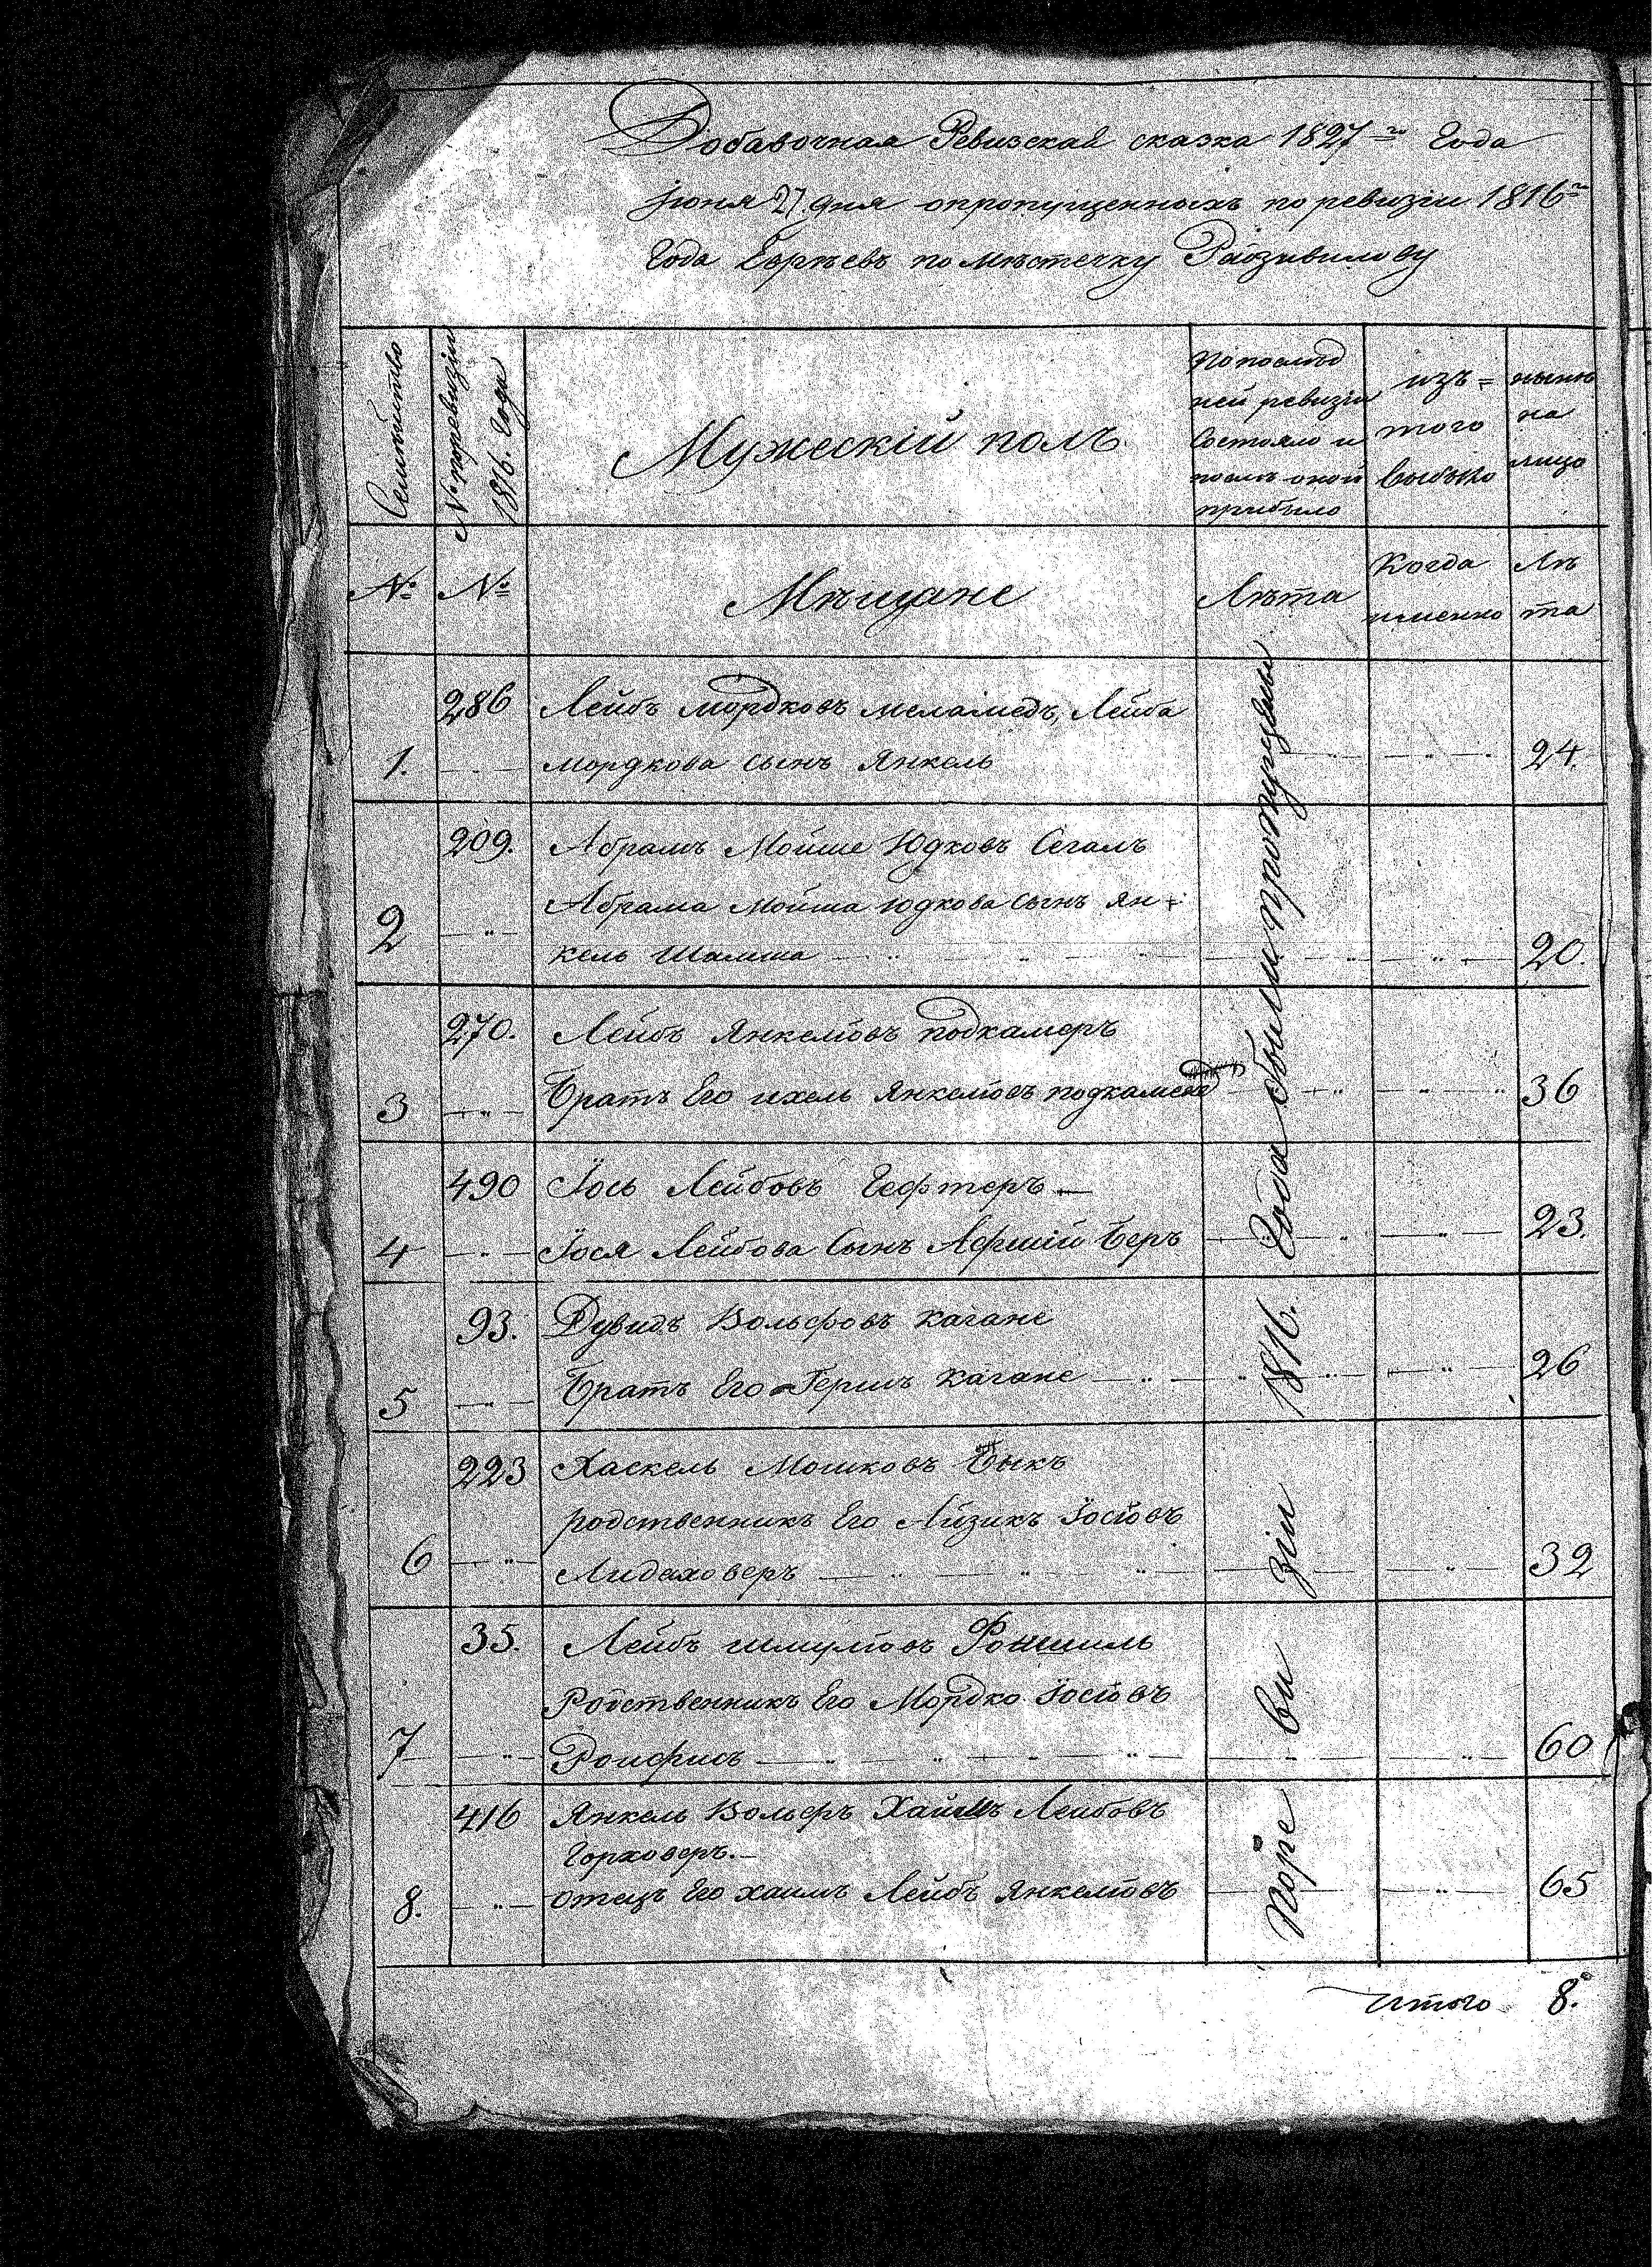 Добавочная Ревизская сказка 1827го Года
июня 27 дня опропущенныхъ по ревизіи 1816го
Года Евреевъ по мѣстечку Радзивилову
Семейство
№ поревизіи
1816. Года
Мужескій полъ
Попослѣд
ней ревизіи
Состояло и
послѣ оной
прибыло
изъ=
того
выбыло
нынѣ
на
лицо
№ № Мѣщане Лѣта
Когда
именно
Лѣ
та
286 Лейбъ Мордковъ меламедъ, Лейба
1. Мордкова сынъ Янкель 24.
209. Абрамъ Мойше Юдковъ Сегалъ
Абрама Мойша Юдкова Сынъ Ян=
2 кель Шамша 20.
270. Лейбъ Янкелювъ подкамеръ
3 Братъ Его ихель Янкелювъ 36
490 Іось Лейбовъ Гефтеръ
4 Іося Лейбова Сынъ Беръ 23.
93. Дувидъ Вольфовъ Кагане
5 Братъ Его Гершъ Кагане 26
223 Хаскель Мошковъ Быкъ
родственникъ Его Айзикъ Іосіовъ
6 32
35. Лейбъ шмулювъ
Родственникъ Его Мордко Іосіовъ
7 60
416 Янкель Вольфъ Хаимъ Лейбовъ
Горховеръ.
8. отецъ Его хаимъ Лейбъ Янкелювъ 65
Поре ви зіи 1816. Года были пропущены
Итого 8.